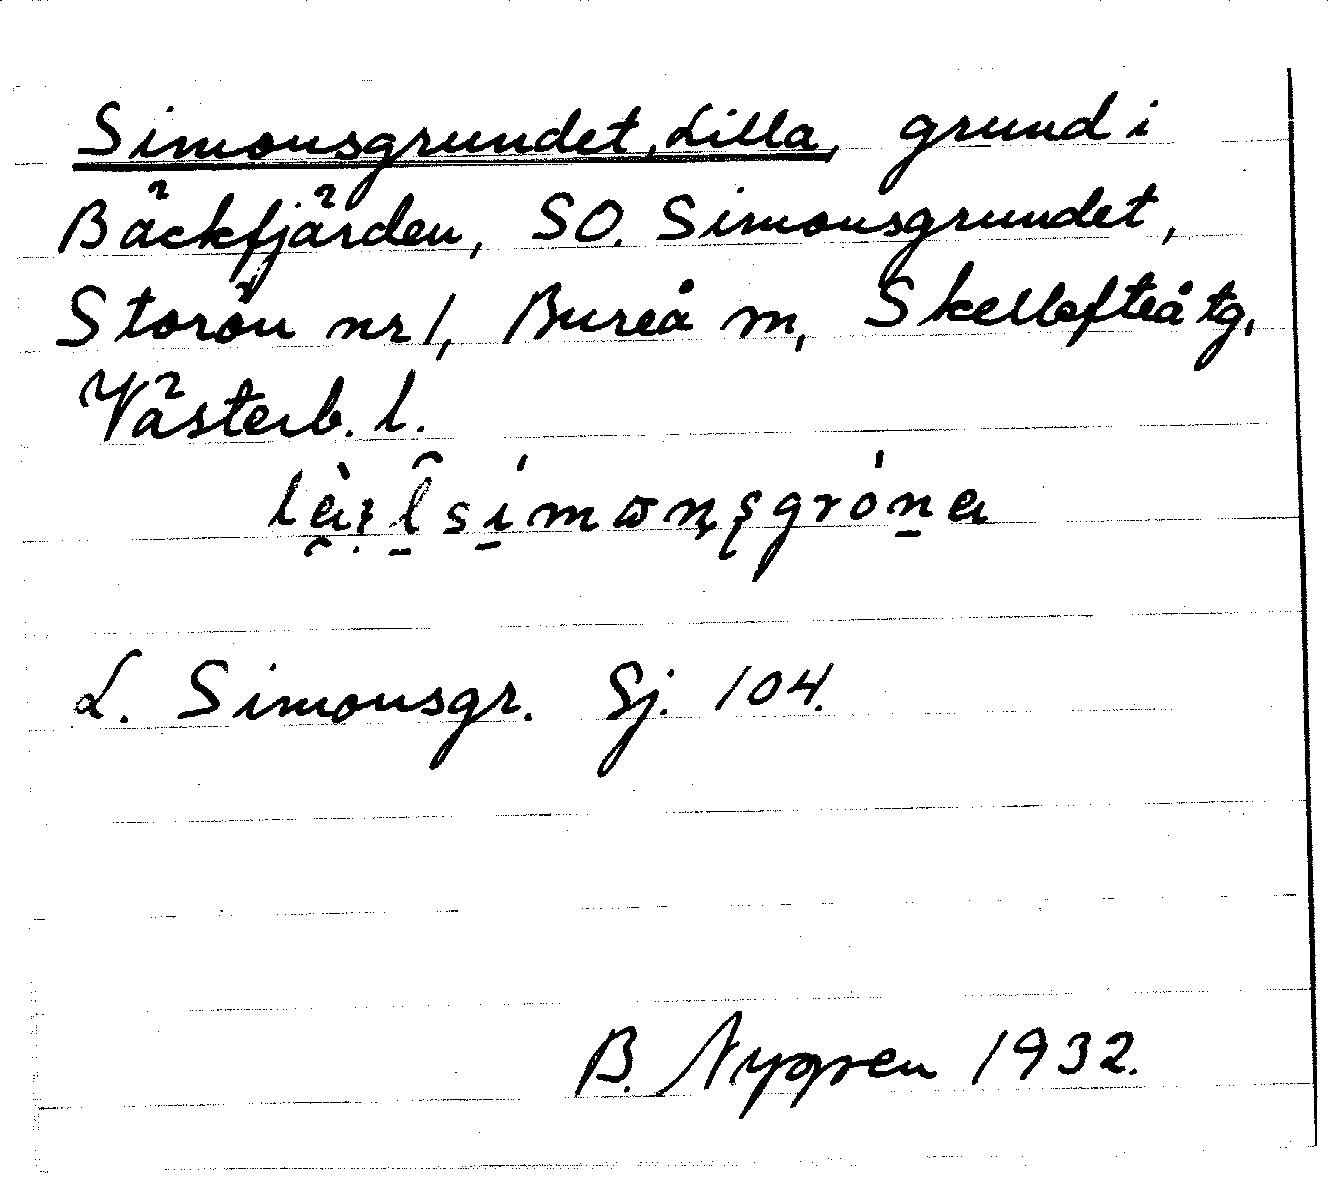 Simonsgrundet, Lilla, grund i
Bäckfjärden, SO. Simonsgrundet,
Storön nr 1, Bureå m, Skellefteå tg,
Västerb. l.
L. Simonsgr. Sj. 104.
B. Nygren 1932.